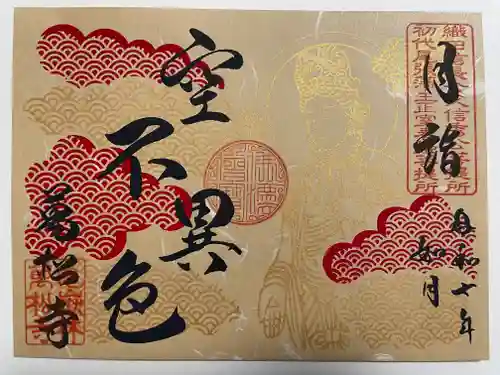 織田信長公父信秀公菩提所
初代尾張藩主正室春姫菩提所
月詣
令和七年
如月
空不異色
萬松寺